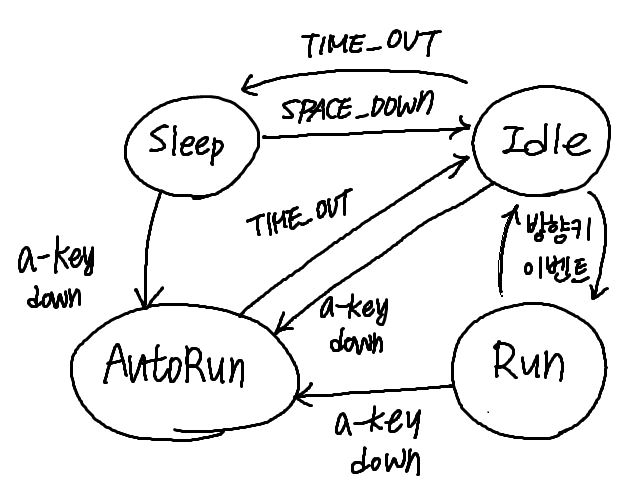 TIME_OUT
SPACE_DOWN
Sleep
Idle
TIME_OUT
방향키
이벤트
a-key
down
a-key
down
AutoRun
Run
a-key
down